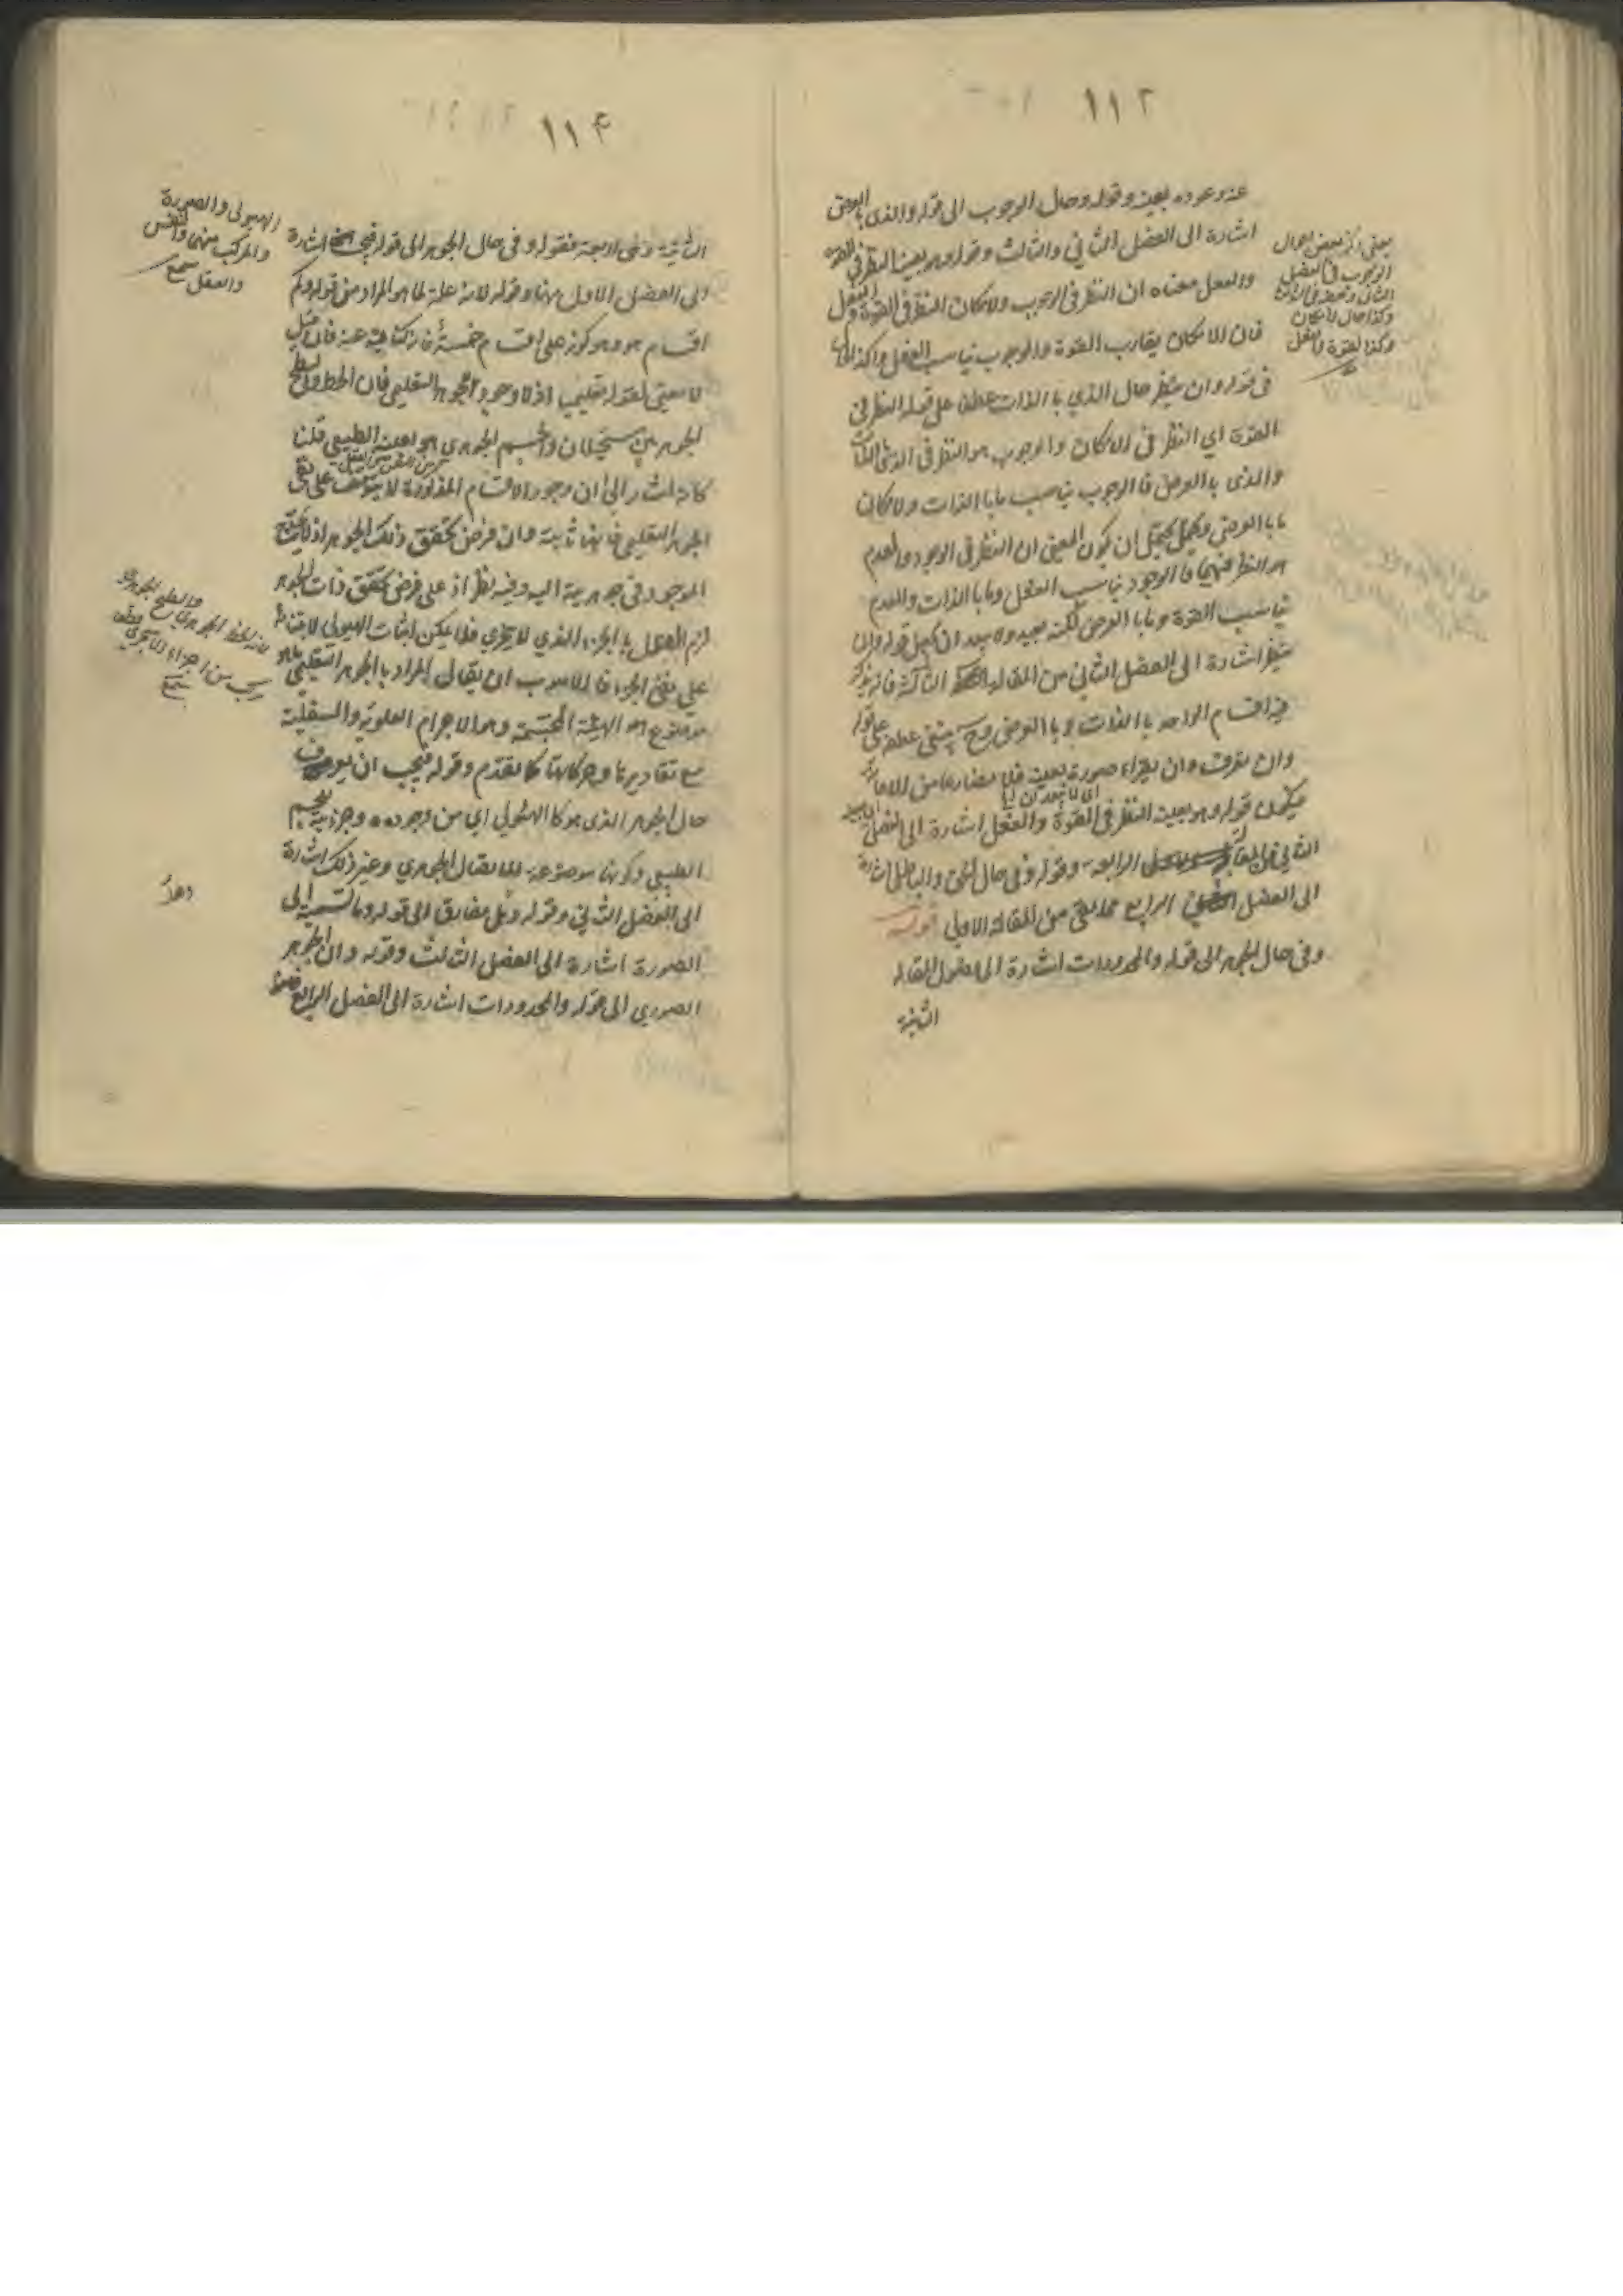 ١١٢
عنه وعوده بعينه وقوله وحال الوجوب الى قوله والذي بالعرض
اشارة الى الفصل الثاني والثالث وقوله وهو بعينه النظر في القوة
والفعل معناه ان النظر في الوجوب والامكان النظر في القوة والفعل
فان الامكان يقارب القوة والوجوب يناسب الفعل وكذا الحال
في قوله وان ينظر حال الذي بالذات عطف على قوله النظر في
القوة اي النظر في الامكان والوجوب هو النظر في الذي بالذات
والذي بالعرض فالوجوب يناسب ما بالذات والامكان
ما بالعرض ويحتمل ان يكون المعنى ان النظر في الوجود والعدم
هو النظر فيهما فالوجود يناسب الفعل وما بالذات والعدم
يناسب القوة وما بالعرض لكنه بعيد ولا يبعد ان يجعل قوله وان
ينظر اشارة الى الفصل الثاني من المقالة الثالثة فانه يذكر
فيه اقسام الواحد بالذات وبالعرض وح ينبغي عطفه على قوله
وان نعرف وان يقراء صورة بعينه فلا مضارعا من الاعانة
فيكون قوله وهو بعينه النظر في القوة والفعل اشارة الى الفصل
الثاني من المقالة الرابعة وقوله وفي حال الحق والباطل اشارة
الى الفصل الرابع مما بقي من المقالة الاولى قوله
وفي حال الجوهر الى قوله والمحدودات اشارة الى فصول المقالة
الثانية
يعني ذكر بعض احوال
الوجوب في الفصل
الثاني وبعضه في الثالث
وكذا حال الامكان
وكذا القوة والفعل
١١٤
الثانية وهي اربعة فقوله وفي حال الجوهر الى قوله فيجب اشارة
الى الفصل الاول منها وقوله لانه علة لما هو المراد من قوله وكم
اقسام هو وهو كونه على اقسام خمسة فانه كناية عنه فان قيل
لا معنى لقوله تعليمي اذ لا وجود للجوهر التعليمي فان الخط والسطح
الجوهريين مستحيلان والجسم الجوهري هو بعينه الطبيعي قلنا
كانه اشار الى ان وجود الاقسام المذكورة لا يتوقف على نفي
الجوهر التعليمي فانها ثابتة وان فرض تحقق ذلك الجوهر اذ لا يحتاج
الموجود في جوهريته اليه وفيه نظر اذ على فرض تحقق ذات الجوهر
لزم القول بالجزء الذي لا يتجزى فلا يمكن اثبات الهيولى لابتنائه
على نفي الجزء فالاصوب ان يقال المراد بالجوهر التعليمي ما هو
موضوع الهيئة المجسمة وهو الاجرام العلوية والسفلية
مع مقاديرها وحركاتها كما تقدم وقوله فيجب ان يعرف
حال الجوهر الذي هو كالهيولى اي من وجوده وجزئيته للجسم
الطبيعي وكونها موضوعة للاتصال الجوهري وغير ذلك اشارة
الى الفصل الثاني وقوله وهل مفارق الى قوله وما نسبته الى
الصورة اشارة الى الفصل الثالث وقوله وان الجوهر
الصوري الى قوله والمحدودات اشارة الى الفصل الرابع
الهيولى والصورة
والمركب منهما والنفس
والعقل
لانه الخط الجوهري والسطح الجوهري
مركب من اجزاء لا تتجزى